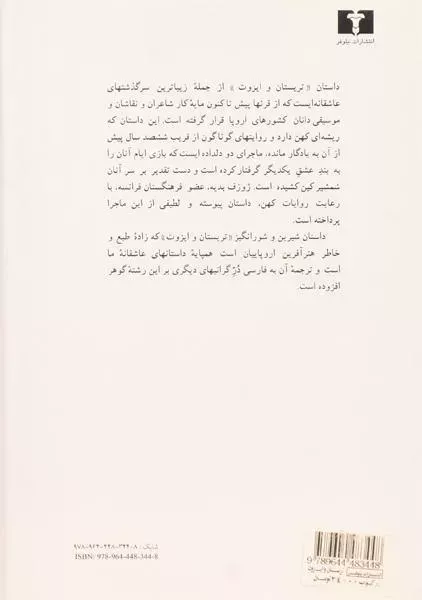 انتشارات نیلوفر
داستان «تریستان و ایزوت» از جملهٔ زیباترین سرگذشتهای
عاشقانه‌ایست که از قرنها پیش تاکنون مایهٔ کار شاعران و نقاشان و
موسیقی‌دانان کشورهای اروپا قرار گرفته است. این داستان که
ریشه‌ای کهن دارد و روایتهای گوناگون از قریب ششصد سال پیش
از آن به یادگار مانده، ماجرای دو دلداده ایست که بازی ایام آنان را
به بندِ عشقِ یکدیگر گرفتار کرده است و دست تقدیر بر سر آنان
شمشیر کین کشیده است. ژوزف بدیه، عضو فرهنگستان فرانسه، با
رعایت روایات کهن، داستان پیوسته و لطیفی از این ماجرا
پرداخته است.
داستان شیرین و شورانگیز «تریستان و ایزوت» که زادهٔ طبع و
خاطر هنرآفرین اروپاییان است همپایهٔ داستانهای عاشقانهٔ ما
است و ترجمهٔ آن به فارسی دُرّ گرانبهای دیگری بر این رشتهٔ گوهر
افزوده است.
شابک: ۸-۳۴۴-۴۴۸-۹۶۴-۹۷۸
ISBN: 978-964-448-344-8
9 789644 483448